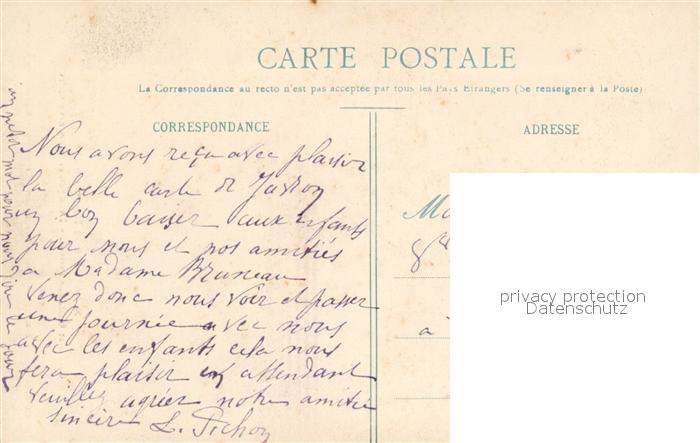 CARTE POSTALE
La Correspondance au recto n'est pas acceptée par tous les Pays Etrangers (Se renseigner à la Poste)
CORRESPONDANCE
Nous avons reçu avec plaisir
la belle carte de
un bon baiser aux enfants
pour nous et nos amitiés
a Madame Bruneau
venez donc nous voir et passer
une journée avec nous
avec les enfants cela nous
fera plaisir en attendant
veuillez agréer notre amitié
sincère L. Pichon
un petit mot pour nous dire le jour
ADRESSE
à
privacy protection
Datenschutz